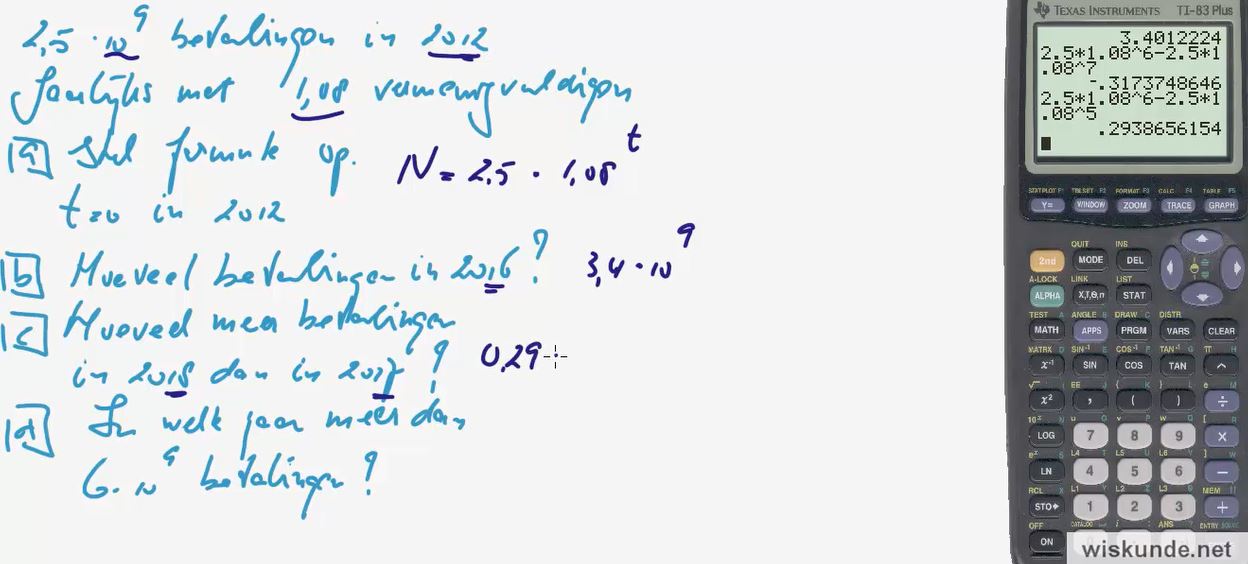 2,5 · 10^9 betalingen in 2012
Jaarlijks met 1,08 vermenigvuldigen
a Stel formule op. N = 2,5 · 1,08^t
t=0 in 2012
b Hoeveel betalingen in 2016? 3,4 · 10^9
c Hoeveel meer betalingen
in 2018 dan in 2017? 0,29
d In welk jaar meer dan
6 · 10^9 betalingen?
TEXAS INSTRUMENTS TI-83 Plus
3.4012224
2.5*1.08^6-2.5*1
.08^7
-.3173748646
2.5*1.08^6-2.5*1
.08^5
.2938656154
STAT PLOT F1 TBLSET F2 FORMAT F3 CALC F4 TABLE F5
Y= WINDOW ZOOM TRACE GRAPH
QUIT INS
2nd MODE DEL
A-LOCK LINK LIST
ALPHA X,T,Θ,n STAT
TEST A ANGLE B DRAW C DISTR
MATH APPS PRGM VARS CLEAR
MATRX D SIN⁻¹ E COS⁻¹ F TAN⁻¹ G π H
x⁻¹ SIN COS TAN ^
√ I EE J { K } L e M
x² , ( ) ÷
10ˣ N u O v P w Q [ R
LOG 7 8 9 ×
eˣ S L4 T L5 U L6 V ] W
LN 4 5 6 −
RCL X L1 Y L2 Z L3 θ MEM "
STO▸ 1 2 3 +
OFF CATALOG i ANS ENTRY SOLVE
ON
wiskunde.net